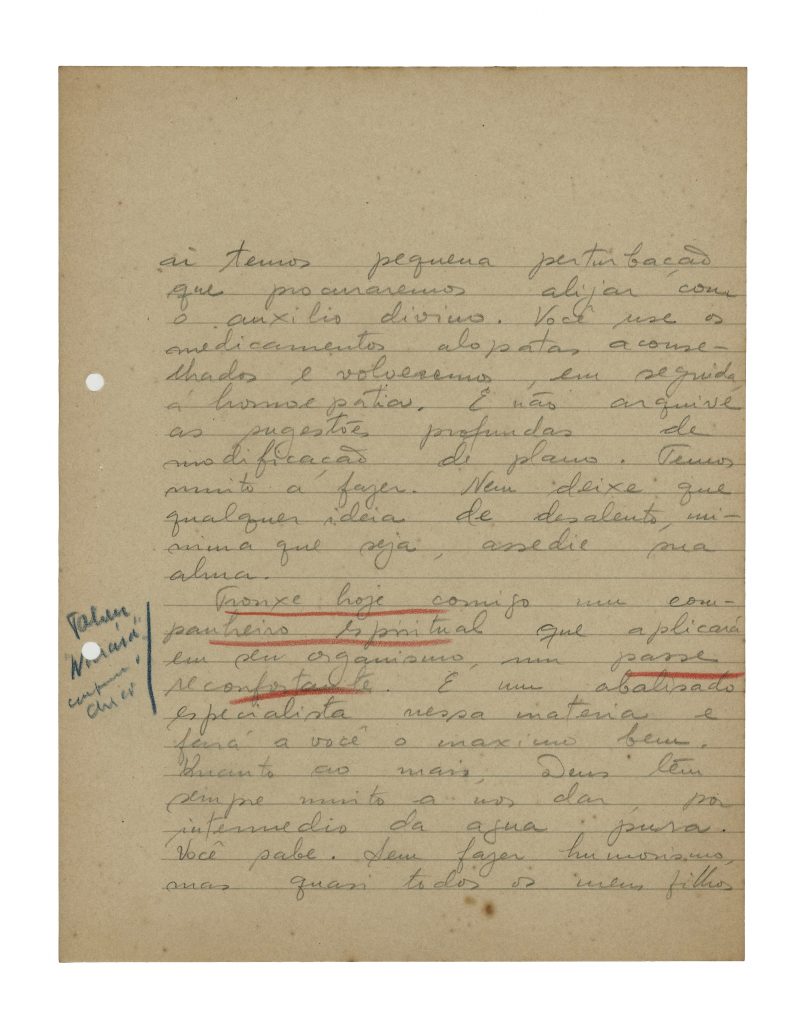 aí temos pequena perturbação
que procuraremos alijar com
o auxilio divino. Você use os
medicamentos alopatas aconse-
lhados e volveremos, em seguida,
á homoepatia. E não arquive
as sugestões profundas de
modificação de plano. Temos
muito a fazer. Nem deixe que
qualquer idéia de desalento, mi-
nima que seja, assedie sua
alma.
Trouxe hoje comigo um com-
panheiro espiritual que aplicará
em seu organismo, um passe
reconfortante. E um abalisado
especialista nessa materia e
fará a você o maximo bem.
Quanto ao mais, Deus têm
sempre muito a nos dar, por
intermedio da agua pura.
Você sabe. Sem fazer humorismo,
mas quasi todos os meus filhos
Chico